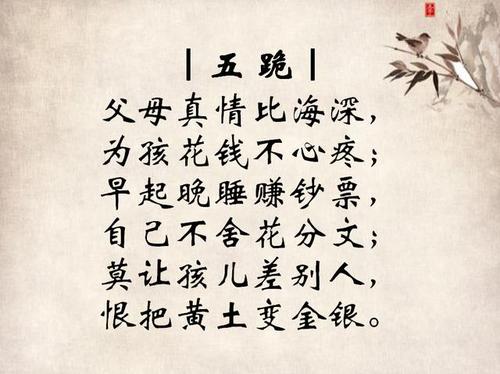 |五跪|
父母真情比海深，
为孩花钱不心疼；
早起晚睡赚钞票，
自己不舍花分文；
莫让孩儿差别人，
恨把黄土变金银。